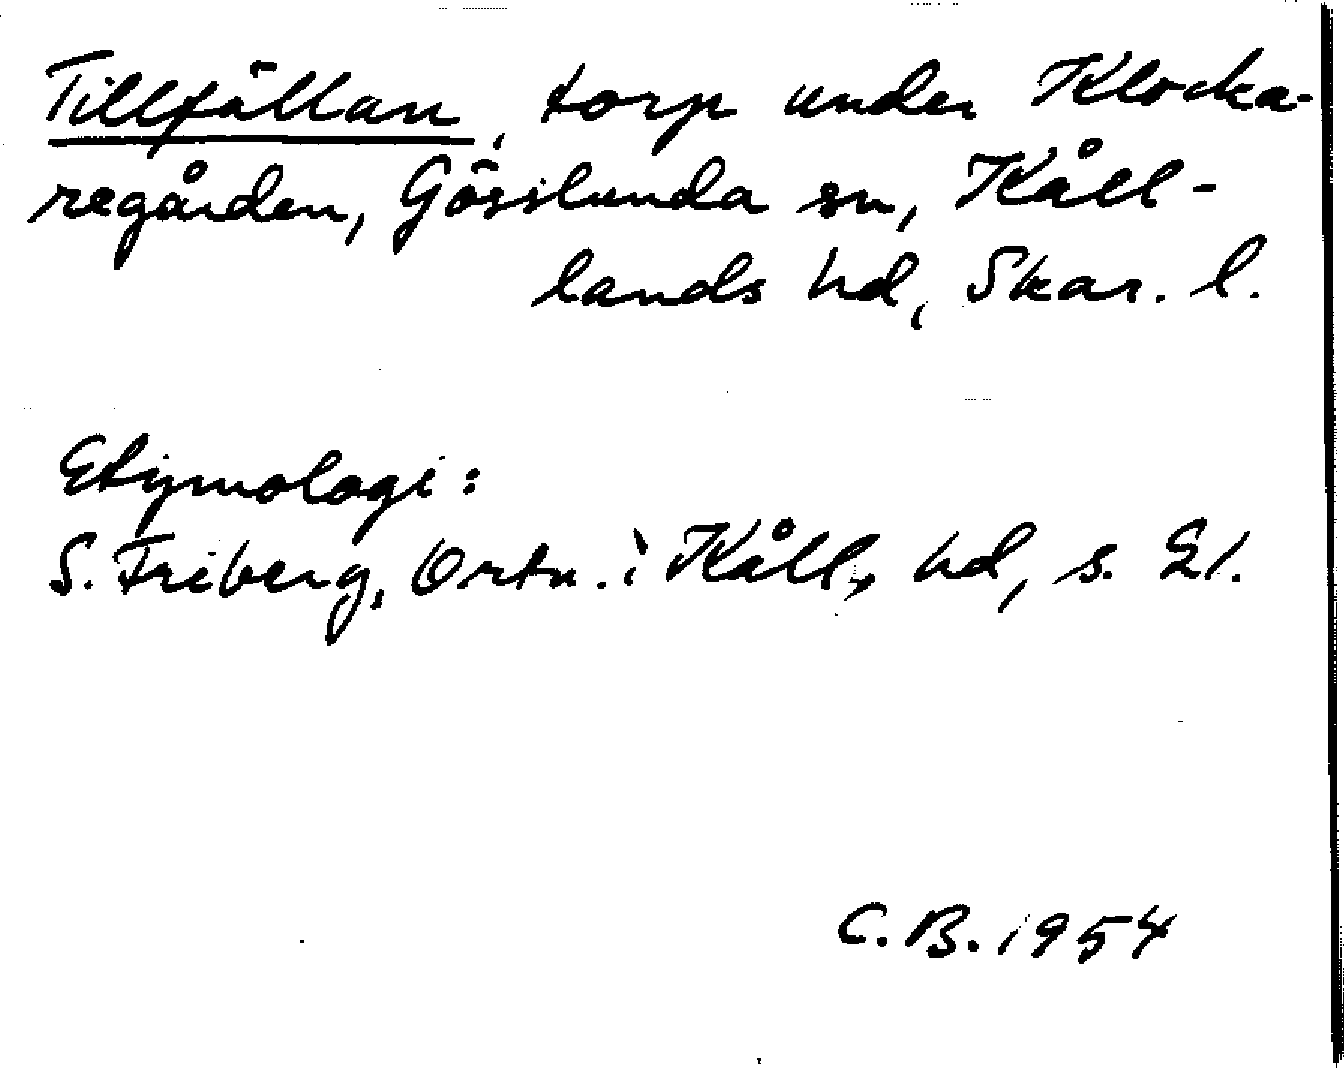 Tillfällan, torp under Klocka-
regården, Gösslunda sn, Kåll-
lands hd, Skar. l.
Etymologi:
S. Friberg, Ortn. i Kåll. hd, s. 21.
C.B. 1954